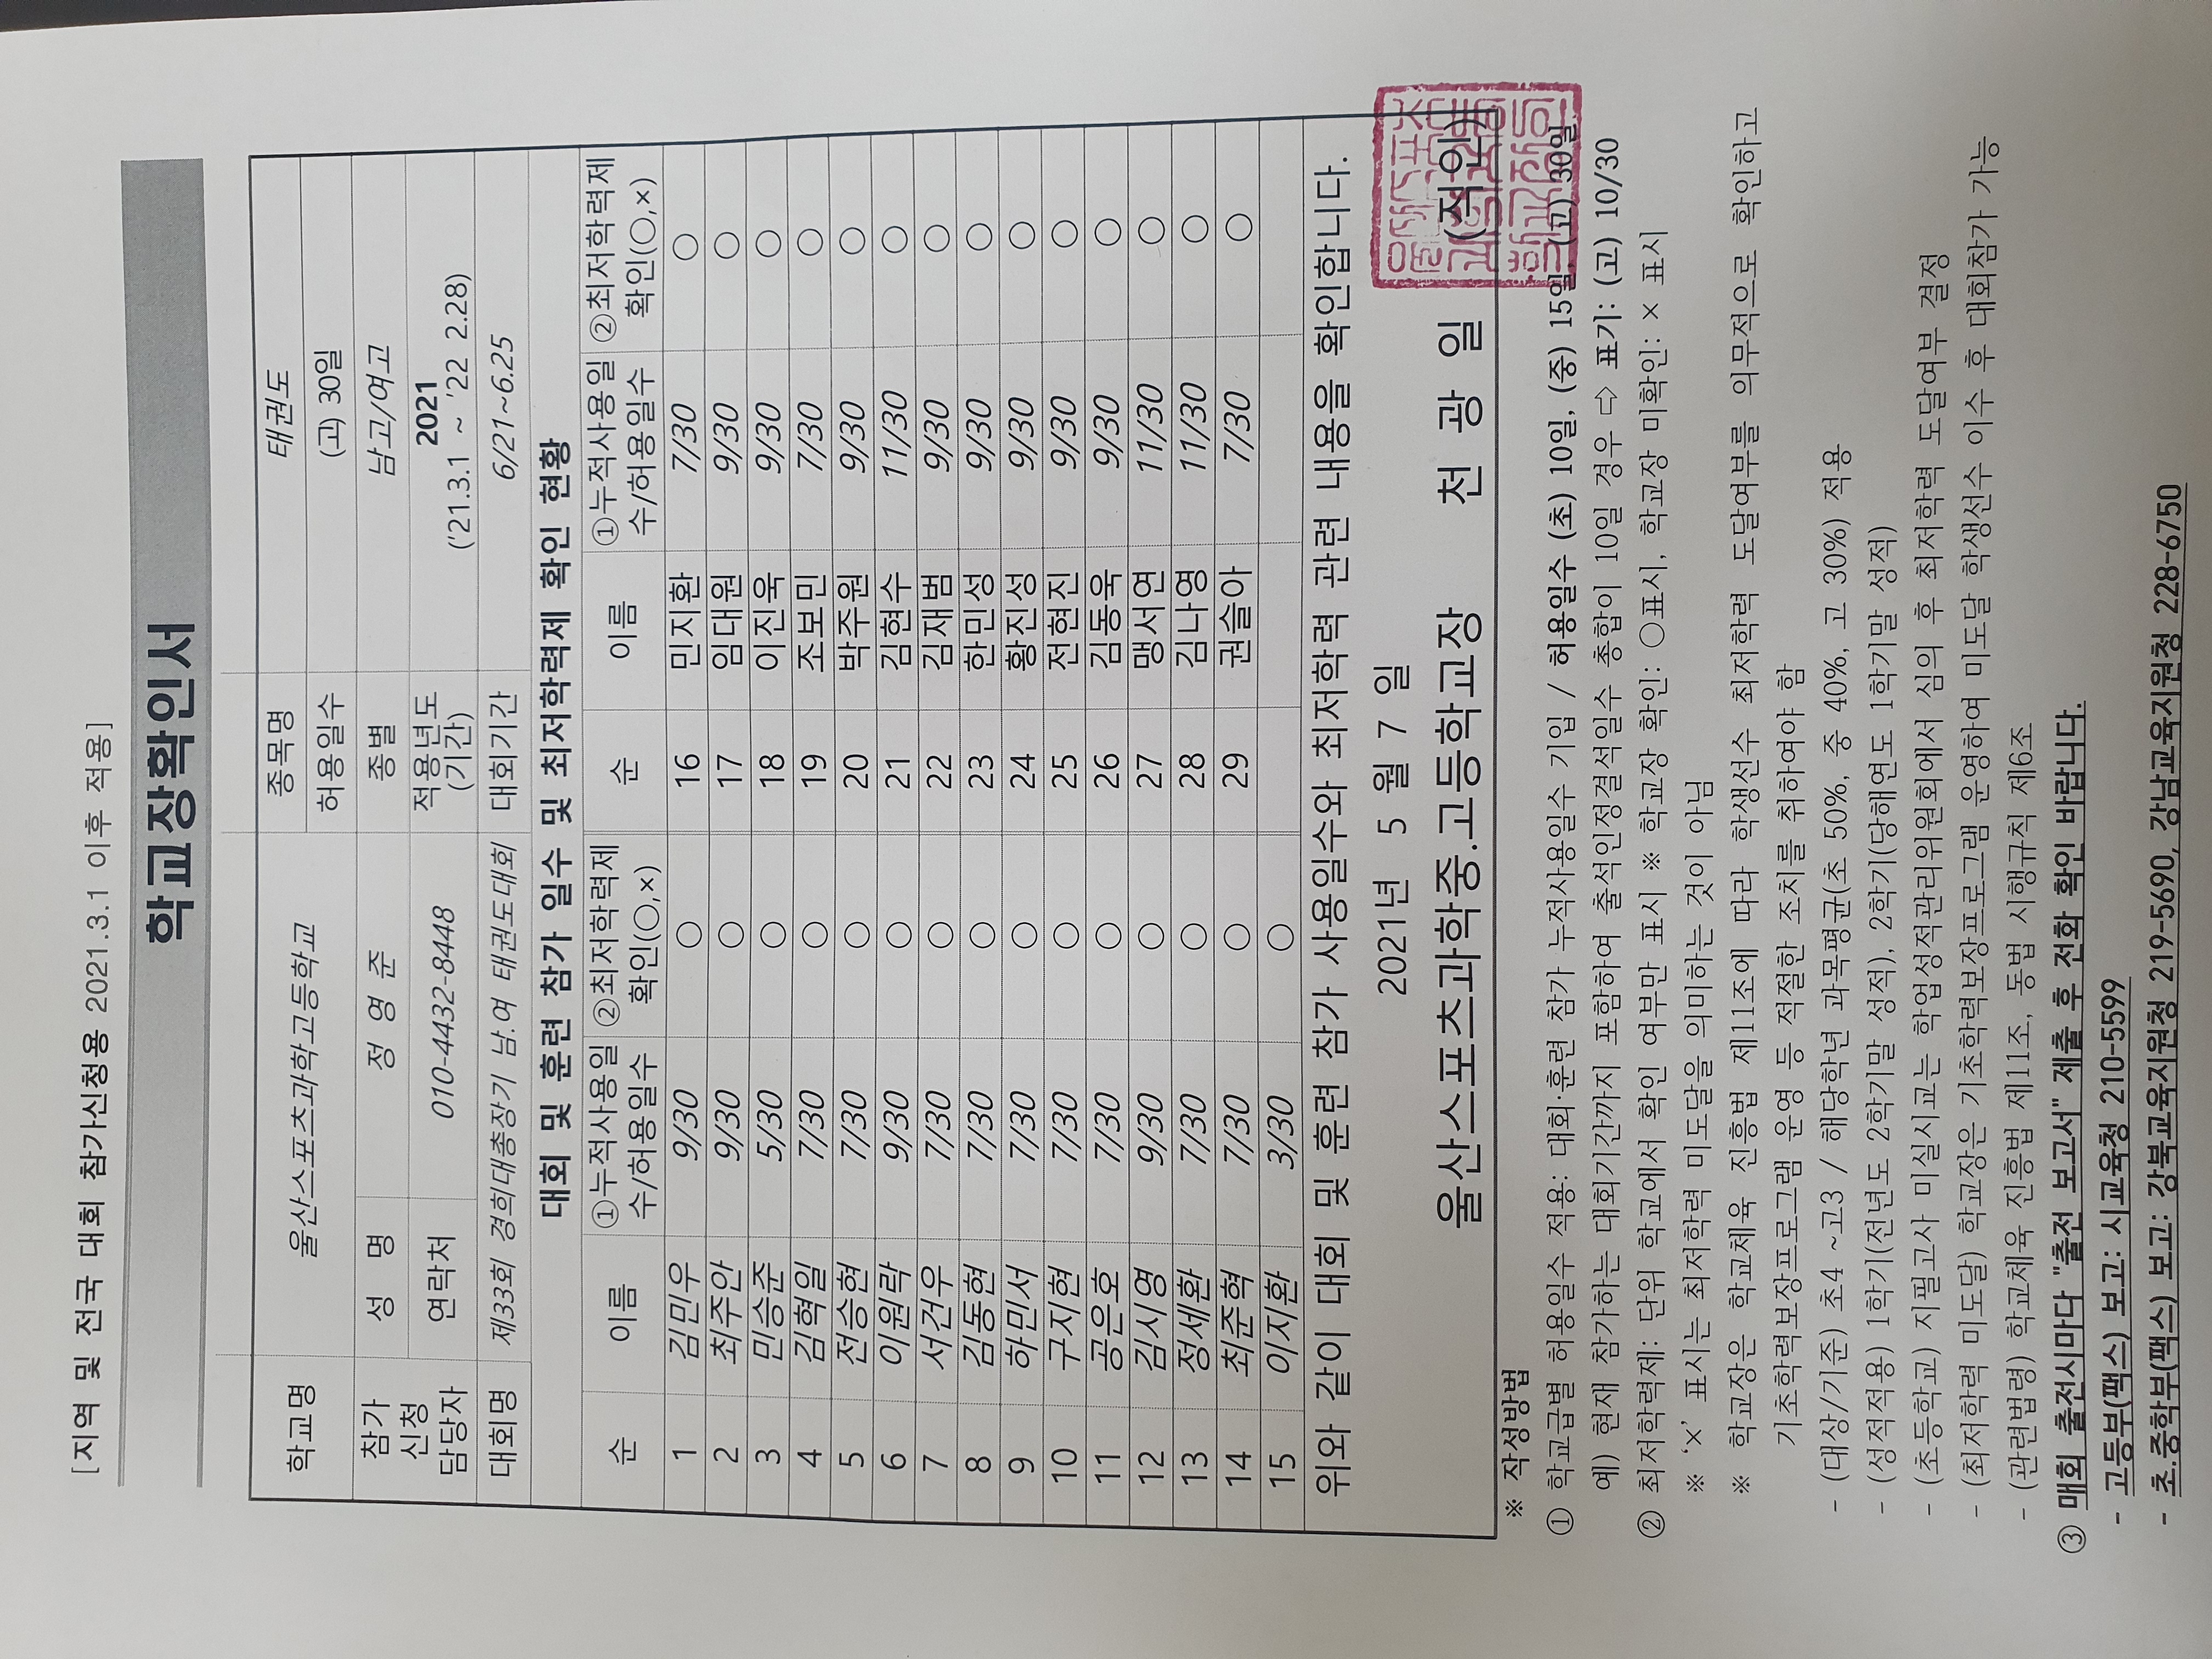 [지역 및 전국 대회 참가신청용 2021.3.1 이후 적용]
학교장확인서
학교명 울산스포츠과학고등학교 종목명 태권도
허용일수 (고) 30일
참가 신청 담당자 성 명 정 영 준 종별 남고/여고
연락처 010-4432-8448 적용년도 (기간) 2021 ('21.3.1 ~ '22 2.28)
대회명 제33회 경희대총장기 남.여 태권도대회 대회기간 6/21~6.25
대회 및 훈련 참가 일수 및 최저학력제 확인 현황
순 이름 ①누적사용일수/허용일수 ②최저학력제 확인(○,×) 순 이름 ①누적사용일수/허용일수 ②최저학력제 확인(○,×)
1 김민우 9/30 ○ 16 민지환 7/30 ○
2 최주안 9/30 ○ 17 임대원 9/30 ○
3 민승준 5/30 ○ 18 이진욱 9/30 ○
4 김혁일 7/30 ○ 19 조보민 7/30 ○
5 전승현 7/30 ○ 20 박주원 9/30 ○
6 이원락 9/30 ○ 21 김현수 11/30 ○
7 서건우 7/30 ○ 22 김재범 9/30 ○
8 김동현 7/30 ○ 23 한민성 9/30 ○
9 하민서 7/30 ○ 24 황진성 9/30 ○
10 구지현 7/30 ○ 25 전현진 9/30 ○
11 공은호 7/30 ○ 26 김동욱 9/30 ○
12 김시영 9/30 ○ 27 맹서연 11/30 ○
13 정세환 7/30 ○ 28 김나영 11/30 ○
14 최준혁 7/30 ○ 29 권슬아 7/30 ○
15 이지환 3/30 ○
위와 같이 대회 및 훈련 참가 사용일수와 최저학력 관련 내용을 확인합니다.
2021년 5 월 7 일
울산스포츠과학중.고등학교장 천 광 일 (직인)
※ 작성방법
① 학교급별 허용일수 적용: 대회·훈련 참가 누적사용일수 기입 / 허용일수 (초) 10일, (중) 15일, (고) 30일
예) 현재 참가하는 대회기간까지 포함하여 출석인정결석일수 총합이 10일 경우 ⇨ 표기: (고) 10/30
② 최저학력제: 단위 학교에서 확인 여부만 표시 ※ 학교장 확인: ○표시, 학교장 미확인: × 표시
※ '×' 표시는 최저학력 미도달을 의미하는 것이 아님
※ 학교장은 학교체육 진흥법 제11조에 따라 학생선수 최저학력 도달여부를 의무적으로 확인하고
기초학력보장프로그램 운영 등 적절한 조치를 취하여야 함
- (대상/기준) 초4 ~고3 / 해당학년 과목평균(초 50%, 중 40%, 고 30%) 적용
- (성적적용) 1학기(전년도 2학기말 성적), 2학기(당해연도 1학기말 성적)
- (초등학교) 지필고사 미실시교는 학업성적관리위원회에서 심의 후 최저학력 도달여부 결정
- (최저학력 미도달) 학교장은 기초학력보장프로그램 운영하여 미도달 학생선수 이수 후 대회참가 가능
- (관련법령) 학교체육 진흥법 제11조, 동법 시행규칙 제6조
③ 매회 출전시마다 "출전 보고서" 제출 후 전화 확인 바랍니다.
- 고등부(팩스) 보고: 시교육청 210-5599
- 초.중학부(팩스) 보고: 강북교육지원청 219-5690, 강남교육지원청 228-6750